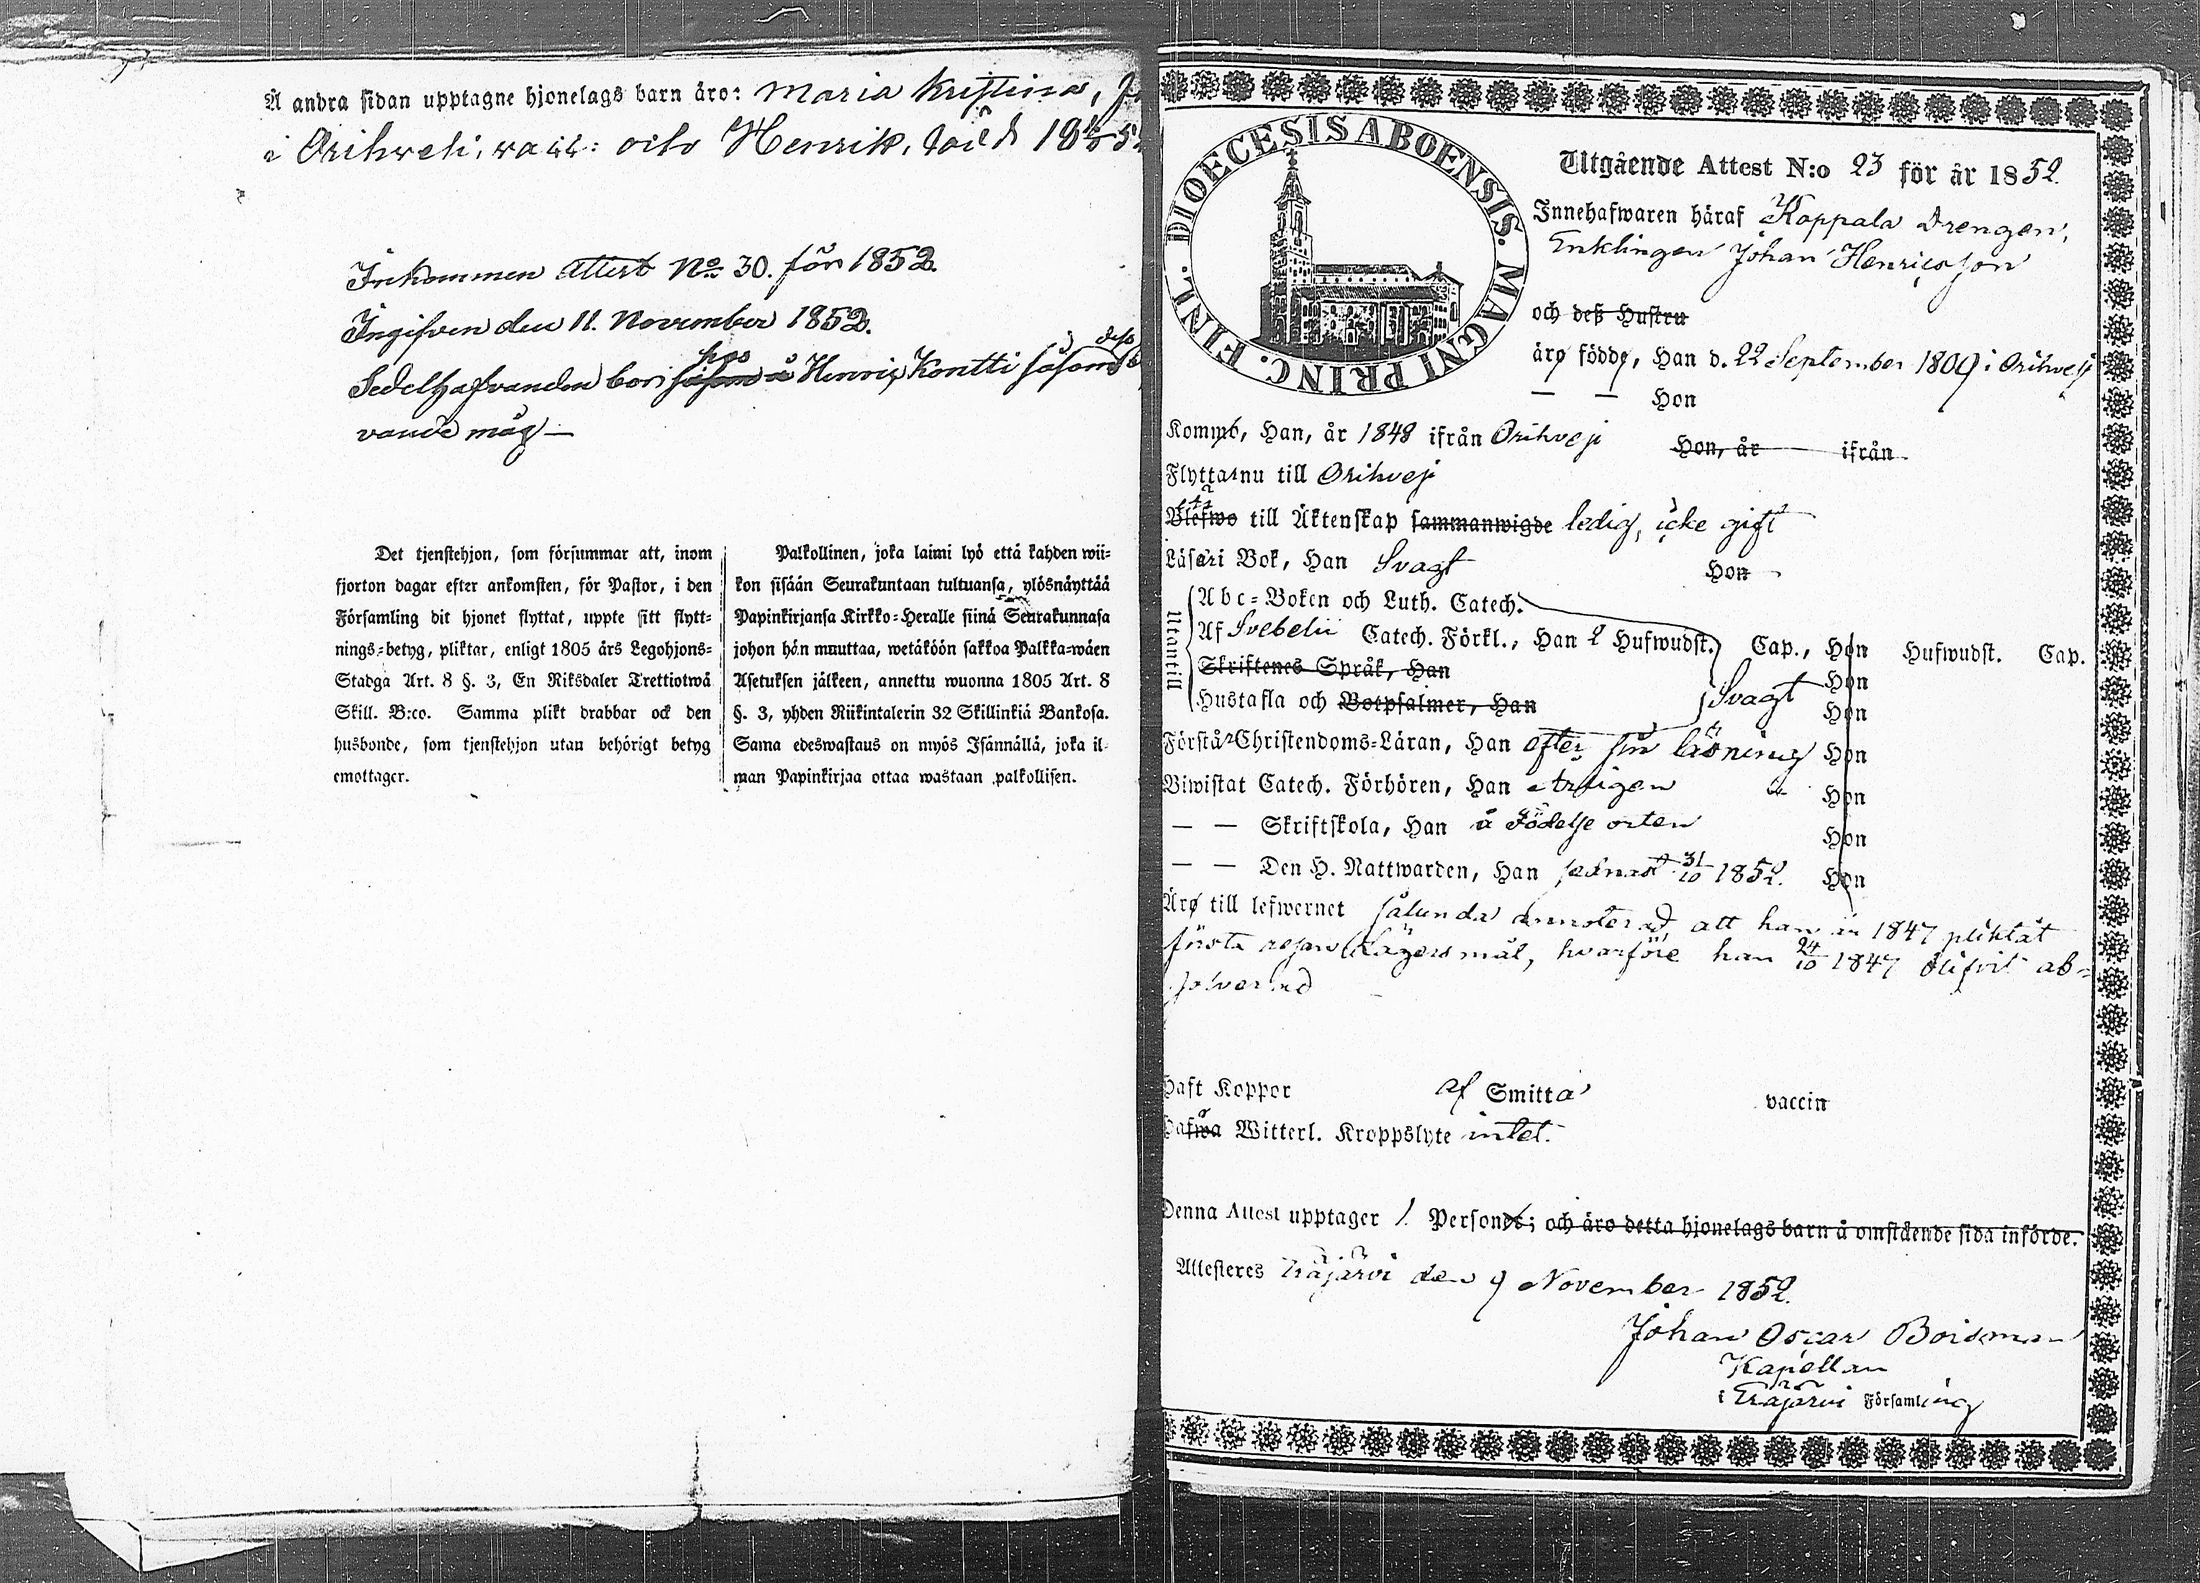 Å andra sidan upptagne hjonelags barn äro: Maria Kristina,
i Orihvesi, vacc: och Henrik, född 18
Inkommen Attest No 30. för 1852.
Ingifven den 11. November 1852.
Sedelhafvanden bor hos Henrix Kontti såsom dess
vande måg —
Det tjenstehjon, som försummar att, inom
fjorton dagar efter ankomsten, för Pastor, i den
Församling dit hjonet flyttat, uppte sitt flytt-
nings-betyg, pliktar, enligt 1805 års Legohjons-
Stadga Art. 8 §. 3, En Riksdaler Trettiotwå
Skill. B:co. Samma plikt drabbar ock den
husbonde, som tjenstehjon utan behörigt betyg
emottager.
Palkollinen, joka laimi lyö että kahden wii-
kon sisään Seurakuntaan tultuansa, ylösnäyttää
Papinkirjansa Kirkko-Herralle siinä Seurakunnasa
johon hän muuttaa, wetäköön sakkoa Palkka-wäen
Asetuksen jälkeen, annettu wuonna 1805 Art. 8
§. 3, yhden Riikintalerin 32 Skillinkiä Bankosa.
Sama edeswastaus on myös Isännällä, joka il-
man Papinkirjaa ottaa wastaan palkollisen.
DIOECESIS ABOENSIS. MAGNI PRINC. FINL.
Utgående Attest N:o 23 för år 1852.
Innehafwaren häraf Koppala Drengen,
Enklingen Johan Henricsson
och deß Hustru
äro födde, Han d. 22 September 1809 i Orihvesi
— — Hon
Kommo, Han, år 1848 ifrån Orihvesi Hon, år ifrån
Flyttar nu till Orihvesi
Blefwo till Äktenskap sammanwigde ledig, icke gift
Läser i Bok, Han Svagt Hon
Utantill
Abc-Boken och Luth. Catech.
Af Svebelii Catech. Förkl., Han 2 Hufwudst. Cap., Hon Hufwudst. Cap.
Skriftenes Språk, Han Hon
Hustafla och Botpsalmer, Han Svagt Hon
Förstår Christendoms-Läran, Han efter sin läsning Hon
Biwistat Catech. Förhören, Han Årligen Hon
— — Skriftskola, Han å Födelse orten Hon
— — Den H. Nattwarden, Han sednast 31/10 1852. Hon
Äro till lefwernet sålunda annoterad, att han är 1847 pliktat
första resan Lägersmål, hvarföre han 24/10 1847 blifvit ab-
solverad
Haft Koppor af Smitta vaccin
Hafwa Witterl. Kroppslyte intet.
Denna Attest upptager 1. Person; och äro detta hjonelags barn å omstående sida införde.
Attesteres Eräjärvi den 9 November 1852.
Johan Oscar Boisman
Kapellan
i Eräjärvi Församling